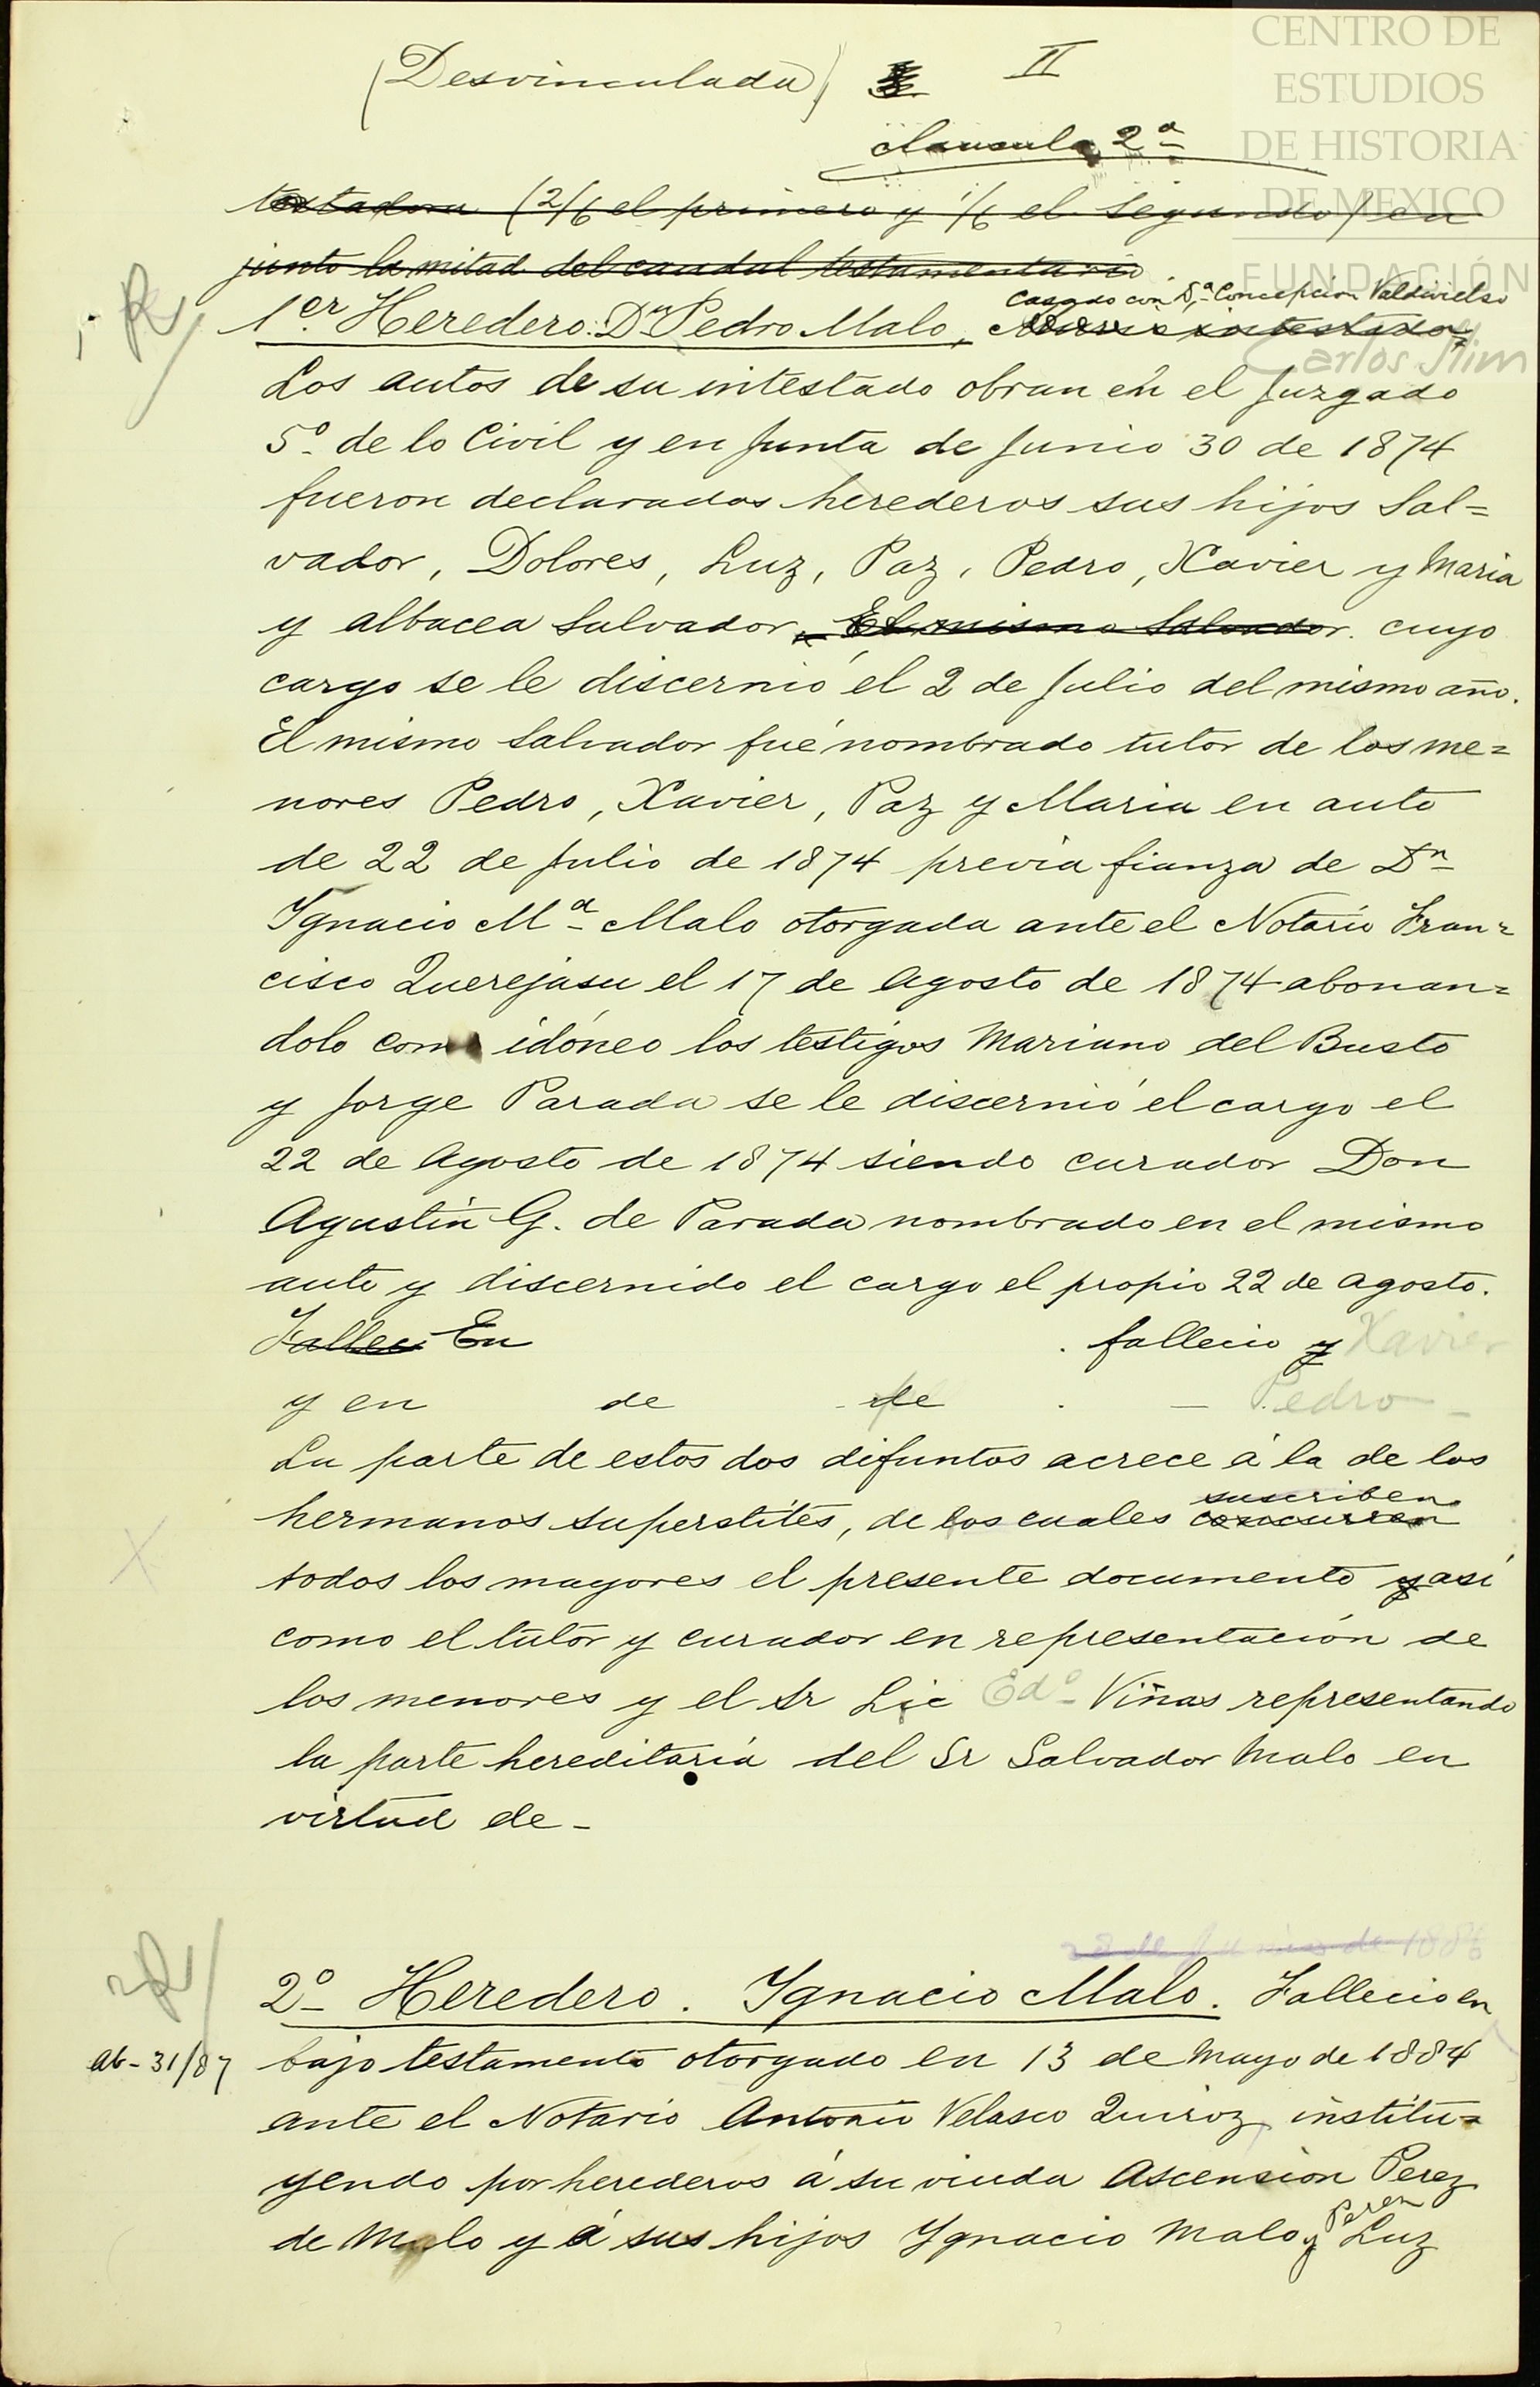 CENTRO DE
ESTUDIOS
DE HISTORIA
DE MEXICO
FUNDACIÓN
Carlos Slim
(Desvinculada) II
clausula 2ª
testadora (2/6 el primero y 1/6 el segundo) en
junto la mitad del caudal testamentario.
casado con Dª Concepcion Valdivielso
1er Heredero: Dn Pedro Malo, Murió intestado,
Los autos de su intestado obran en el Juzgado
5º de lo Civil y en Junta de Junio 30 de 1874
fueron declarados herederos sus hijos Sal=
vador, Dolores, Luz, Paz, Pedro, Xavier y Maria
y albacea Salvador, El mismo Salvador. cuyo
cargo se le discernió el 2 de Julio del mismo año.
El mismo Salvador fué nombrado tutor de los me=
nores Pedro, Xavier, Paz y Maria en auto
de 22 de Julio de 1874 previa fianza de Dn
Ygnacio Mª Malo otorgada ante el Notario Fran=
cisco Querejasu el 17 de Agosto de 1874 abonan=
dolo como idóneo los testigos Mariano del Busto
y Jorge Parada se le discernió el cargo el
22 de Agosto de 1874 siendo curador Don
Agustín G. de Parada nombrado en el mismo
auto y discernido el cargo el propio 22 de Agosto.
Fallec En fallecio y Xavier
y en de de Pedro
La parte de estos dos difuntos acrece á la de los
suscriben
hermanos superstites, de los cuales concurren
todos los mayores el presente documento y asi
como el tutor y curador en representación de
los menores y el Sr Lic Edº Viñas representando
la parte hereditaria del Sr Salvador Malo en
virtud de -
28 de Junio de 1886
2º Heredero. Ygnacio Malo. Fallecio en
ab- 31/87 bajo testamento otorgado en 13 de Mayo de 1884
ante el Notario Antonio Velasco Quiroz, institu=
yendo por herederos á su viuda Ascension Perez
Perez
de Malo y á sus hijos Ygnacio Malo y Luz